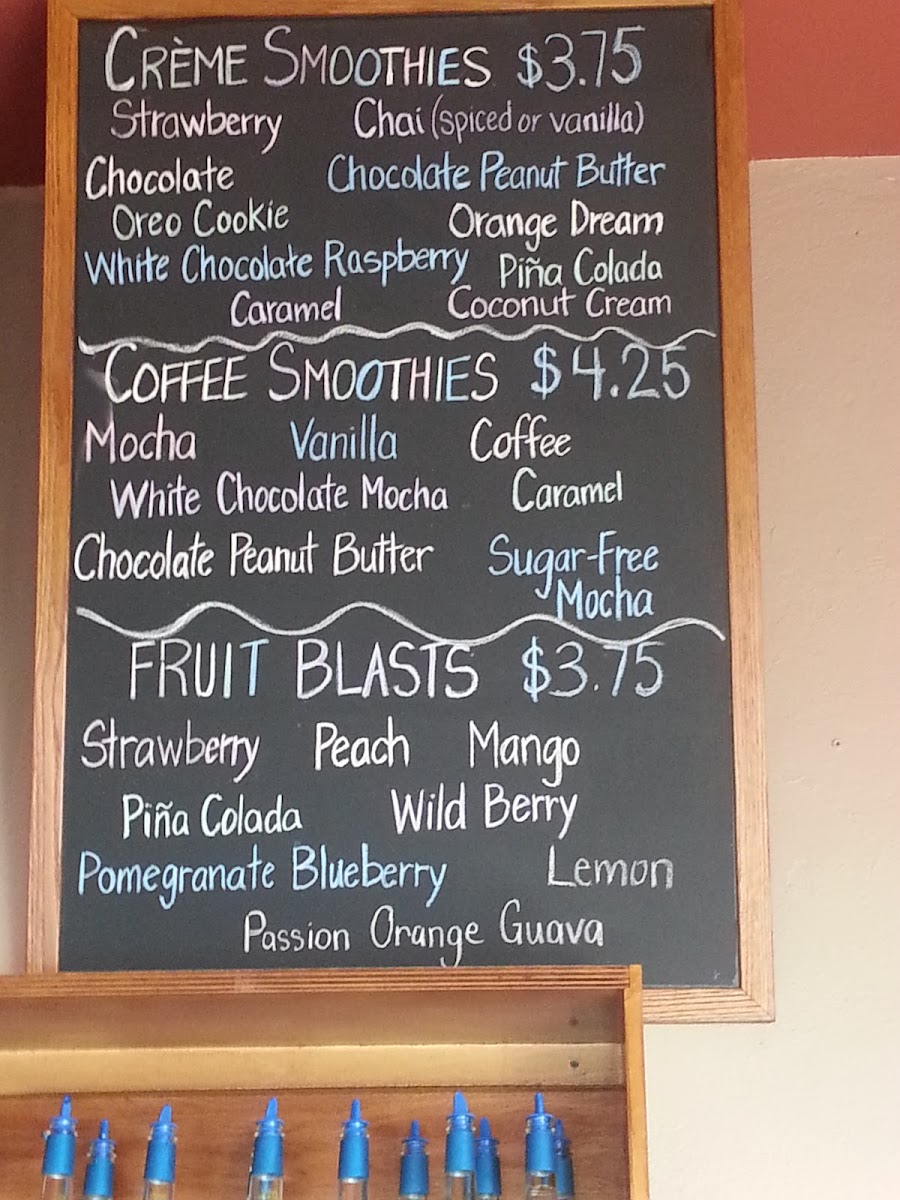 CRÈME SMOOTHIES $3.75
Strawberry Chai (spiced or vanilla)
Chocolate Chocolate Peanut Butter
Oreo Cookie Orange Dream
White Chocolate Raspberry Piña Colada
Caramel Coconut Cream
COFFEE SMOOTHIES $4.25
Mocha Vanilla Coffee
White Chocolate Mocha Caramel
Chocolate Peanut Butter Sugar-Free
Mocha
FRUIT BLASTS $3.75
Strawberry Peach Mango
Piña Colada Wild Berry
Pomegranate Blueberry Lemon
Passion Orange Guava